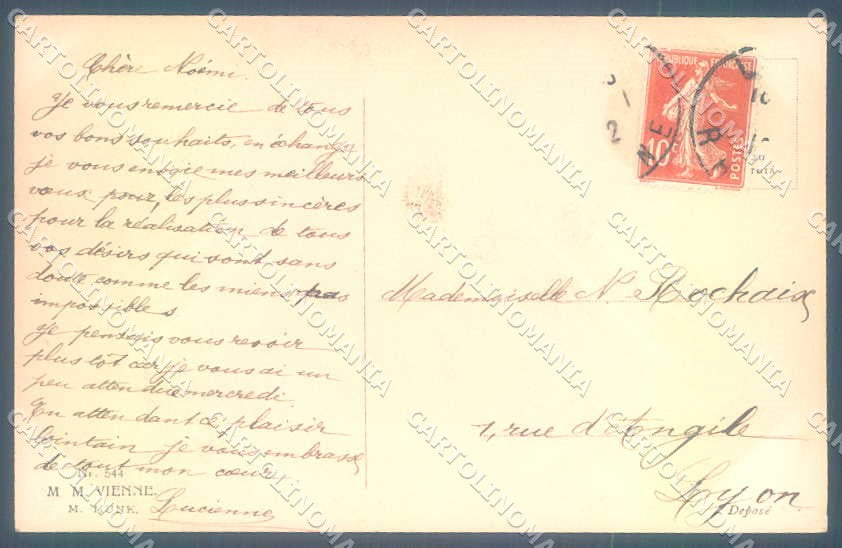 Chère Noémi.
Je vous remercie de tous
vos bons souhaits, en échange
je vous envoie mes meilleurs
vœux pour, les plus sincères
pour la réalisation de tous
vos désirs qui sont sans
doute comme les miens pas
impossibles
Je pensais vous revoir
plus tôt car je vous ai un
peu attendue mercredi.
En attendant ce plaisir
lointain je vous embrasse
de tout mon cœur
Lucienne
Nr. 544
M. M. VIENNE.
M. MUNK.
RÉPUBLIQUE FRANÇAISE
10 c
POSTES
Mademoiselle N. Rochaix
1, rue d'Angile
Lyon
Déposé
CARTOLINOMANIA